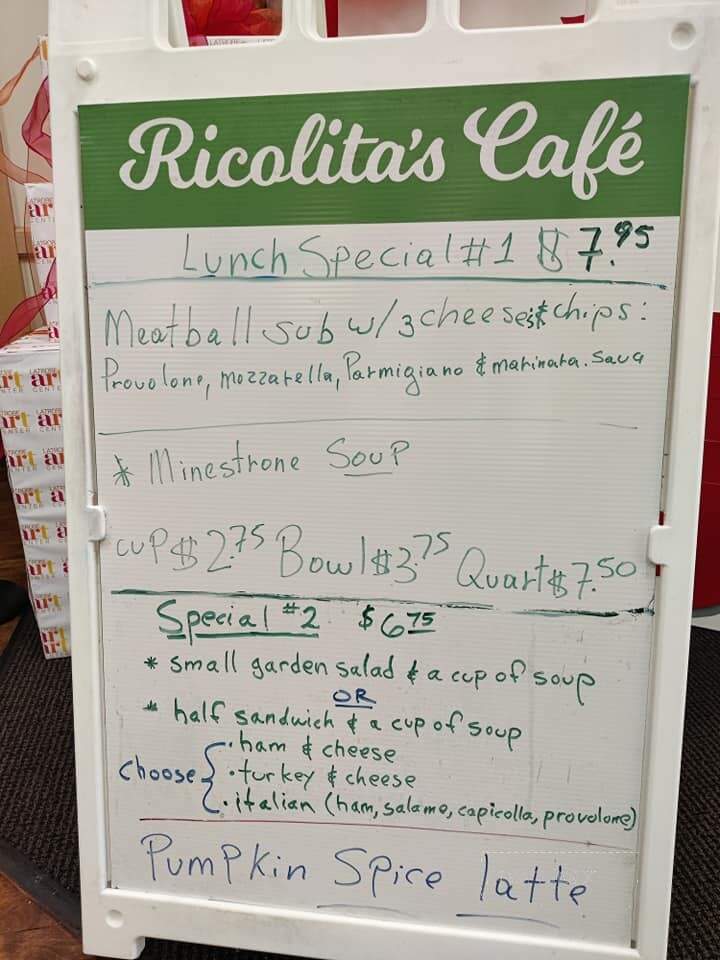 Ricolita's Café
Lunch Special #1 $7.95
Meatball sub w/ 3 cheeses & chips:
Provolone, mozzarella, Parmigiano & marinara.
* Minestrone Soup
cup $2.75 Bowl $3.75 Quart $7.50
Special #2 $6.75
* small garden salad & a cup of soup
OR
* half sandwich & a cup of soup
· ham & cheese
choose { · turkey & cheese
· italian (ham, salame, capicolla, provolone)
Pumpkin Spice latte
LATROBE
art
CENTER